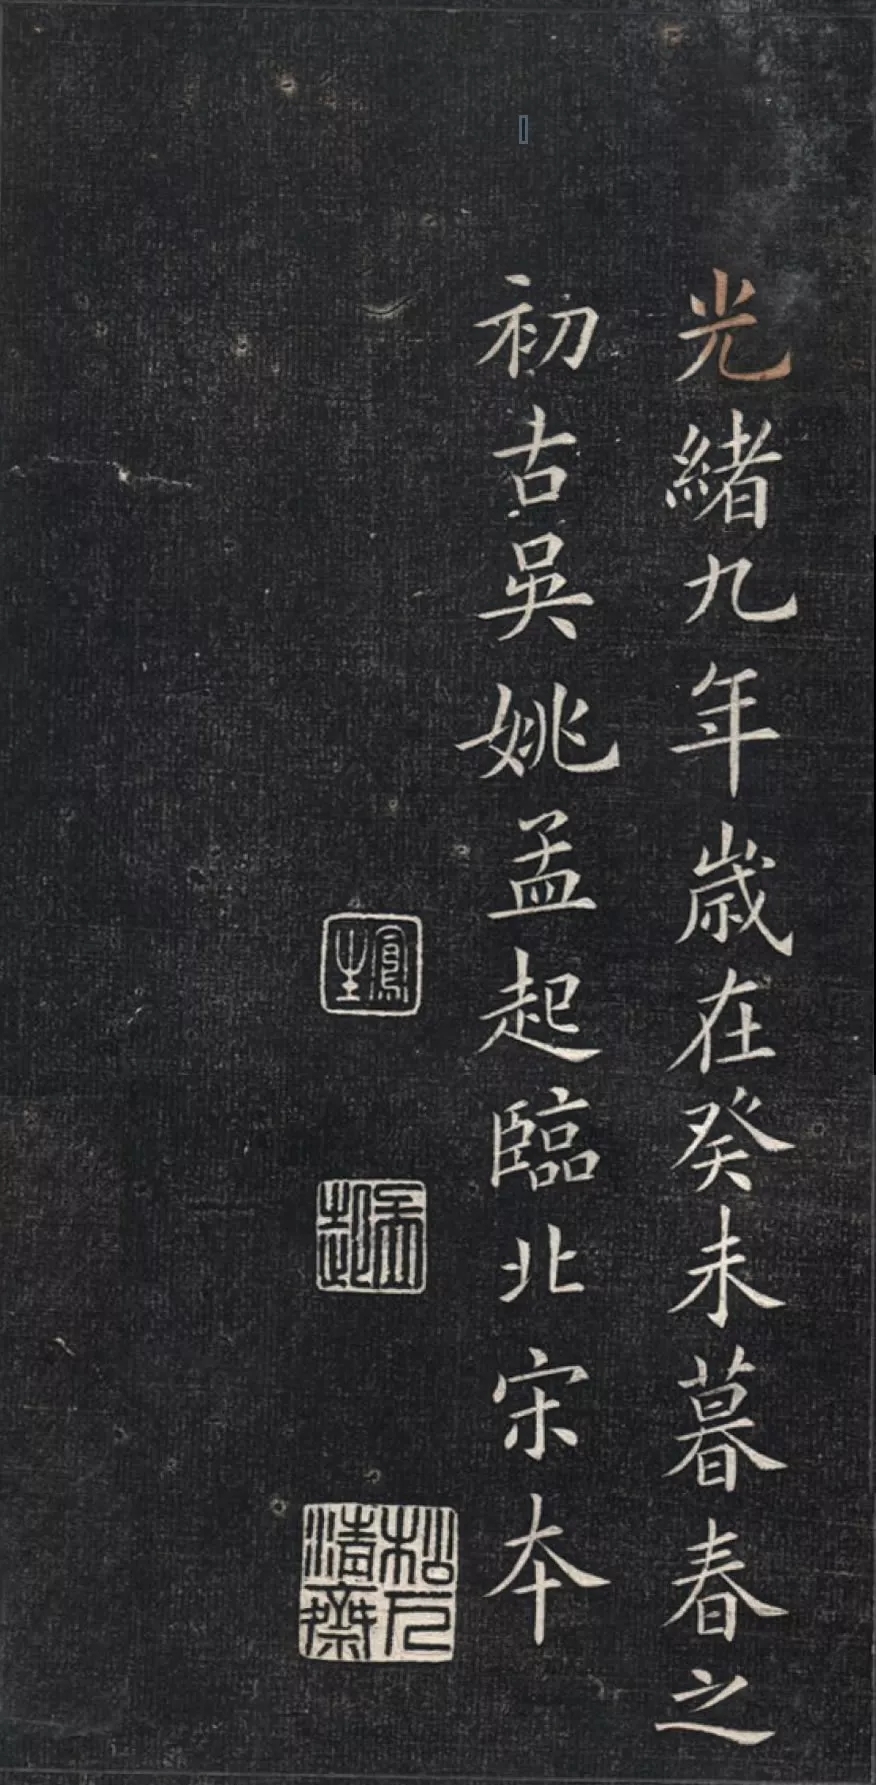 光緒九年歲在癸未暮春之
初古吳姚孟起臨北宋本
鳳生
孟起
松下清齋